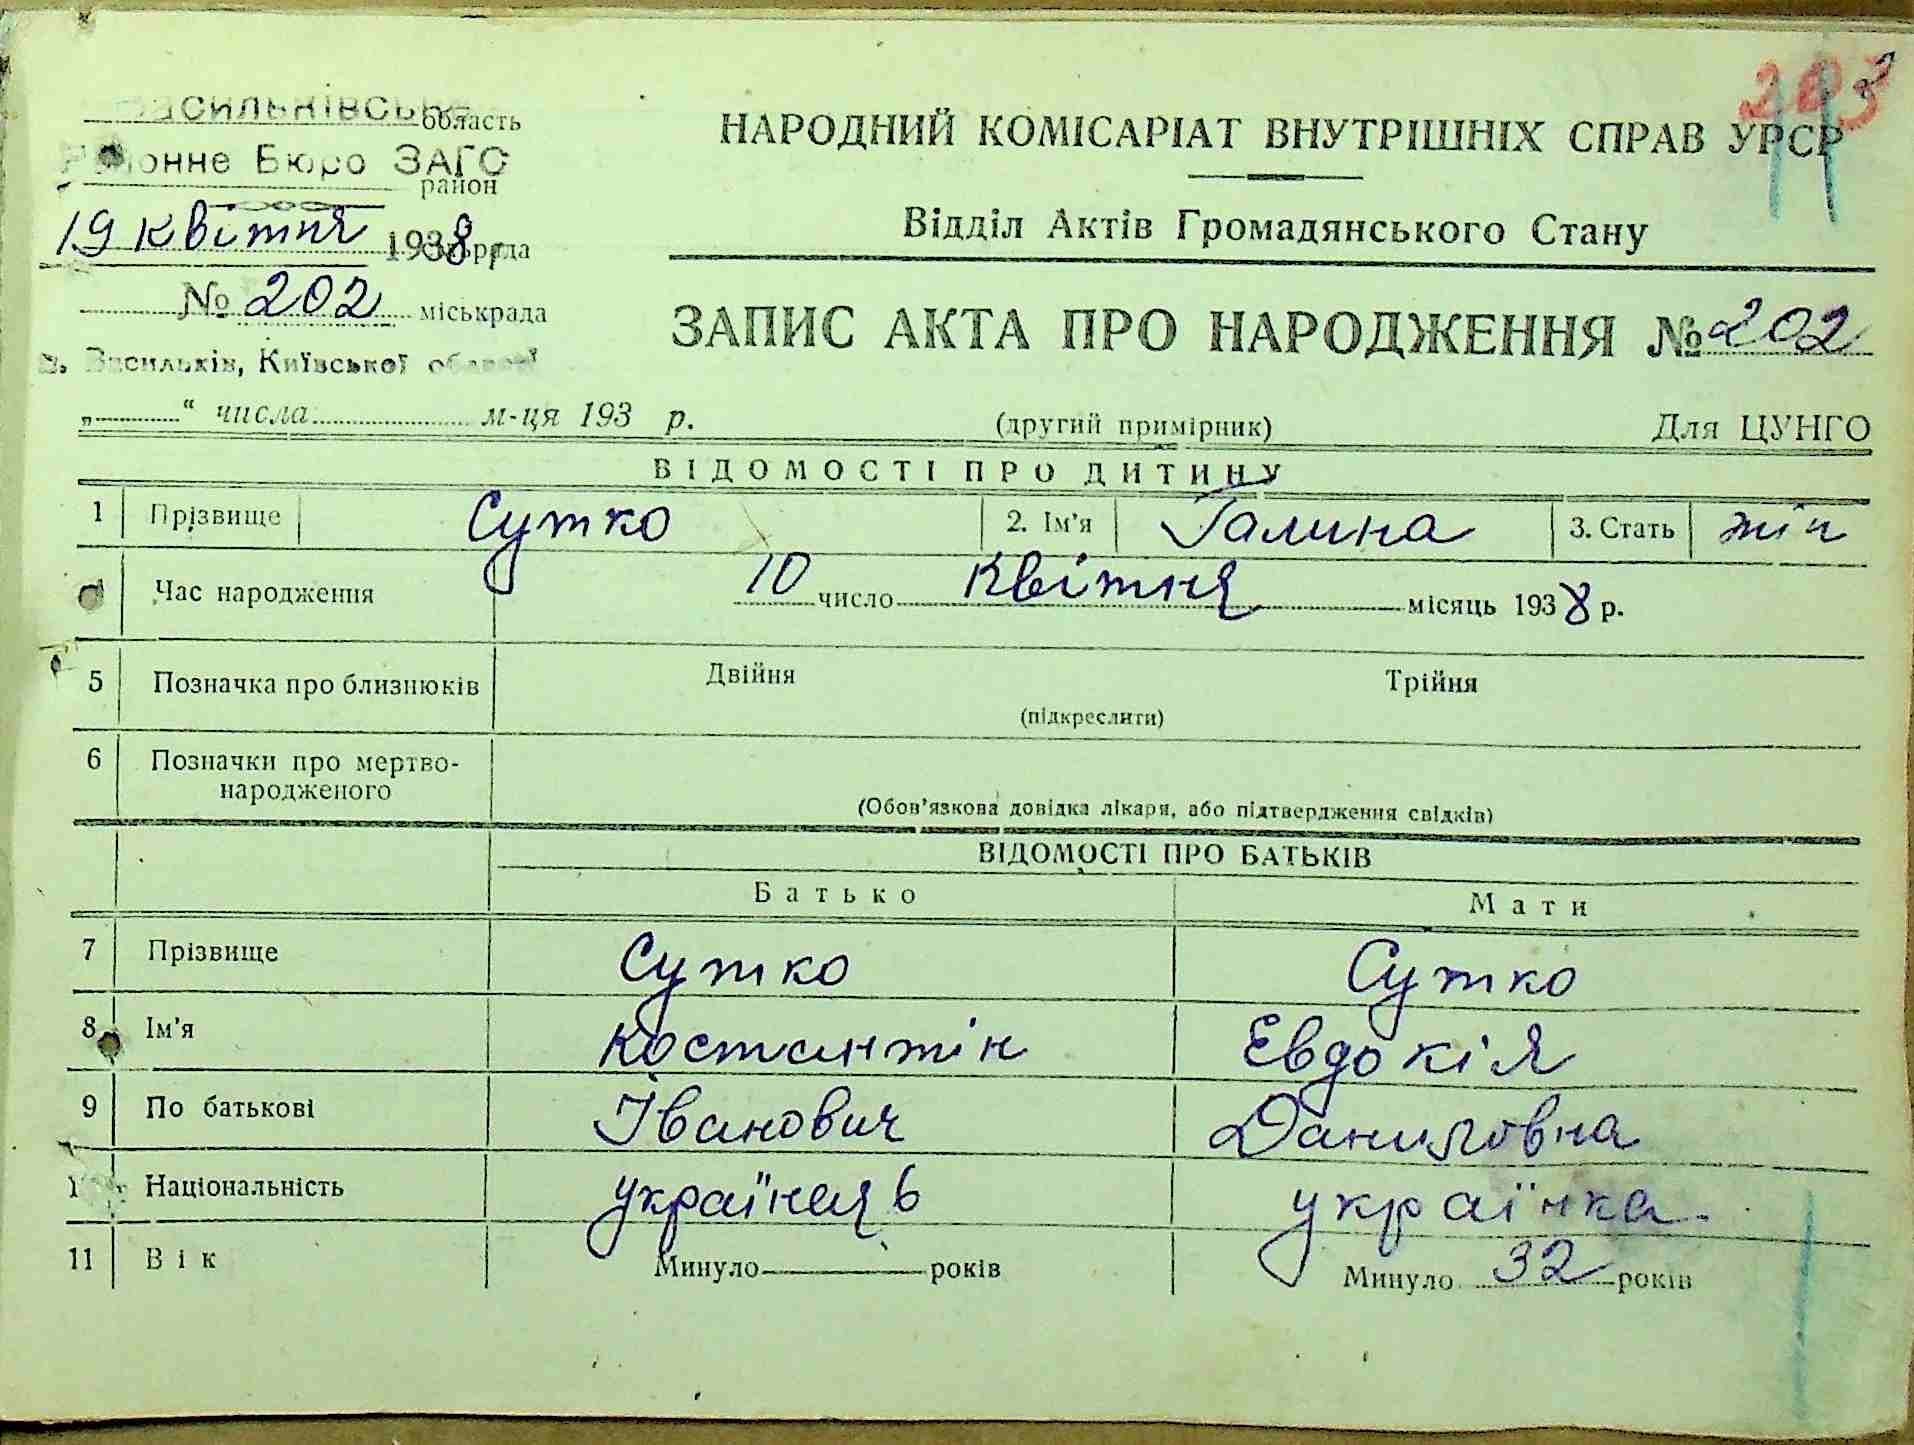 Васильківське область
Районне Бюро ЗАГС
район
19 квітня 1938 р. сільрада
№ 202 міськрада
м. Васильків, Київської області
„ “ числа м-ця 193 р.
НАРОДНИЙ КОМІСАРІАТ ВНУТРІШНІХ СПРАВ УРСР
Відділ Актів Громадянського Стану
ЗАПИС АКТА ПРО НАРОДЖЕННЯ № 202
(другий примірник) Для ЦУНГО
ВІДОМОСТІ ПРО ДИТИНУ
1 Прізвище Сутко 2. Ім'я Галина 3. Стать жін
Час народження 10 число квітня місяць 1938 р.
5 Позначка про близнюків Двійня Трійня
(підкреслити)
6 Позначки про мертво-
народженого
(Обов'язкова довідка лікаря, або підтвердження свідків)
ВІДОМОСТІ ПРО БАТЬКІВ
Батько Мати
7 Прізвище Сутко Сутко
8 Ім'я Костантін Евдокія
9 По батькові Іванович Даниловна
10 Національність українець українка
11 Вік Минуло років Минуло 32 років